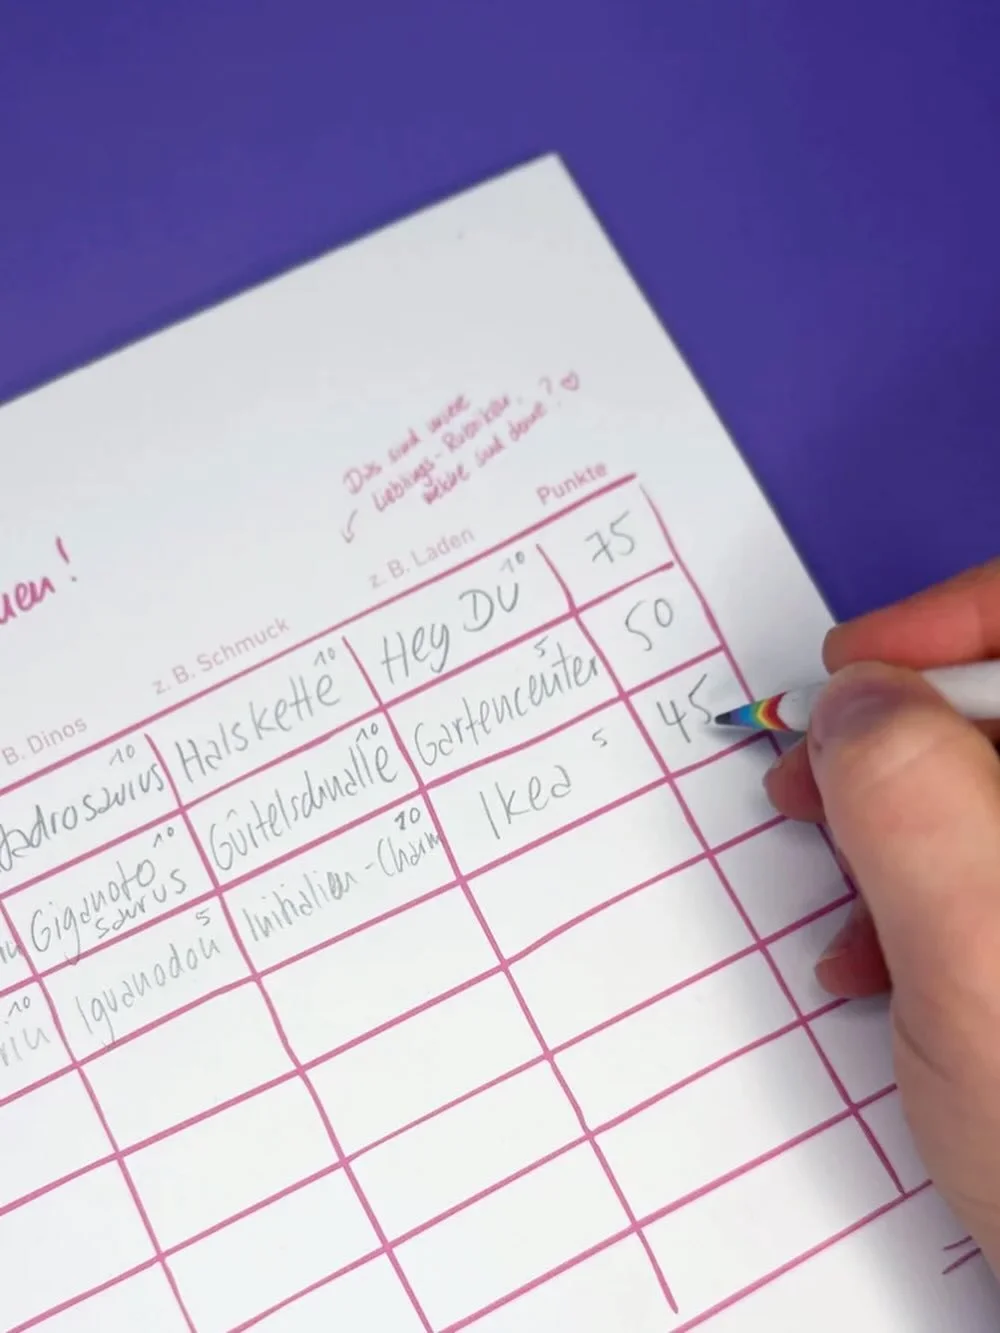 Das sind unsere
Lieblings-Rubriken,
welche sind deine? ♡
uen!
B. Dinos
z. B. Schmuck
z. B. Laden
Punkte
adrosaurus 10
Halskette 10
Hey Du 10
75
Giganoto 10
saurus
Gürtelschnalle 10
Gartencenter 5
50
10
Iguanodon 5
Initialien-Charm 10
Ikea 5
45